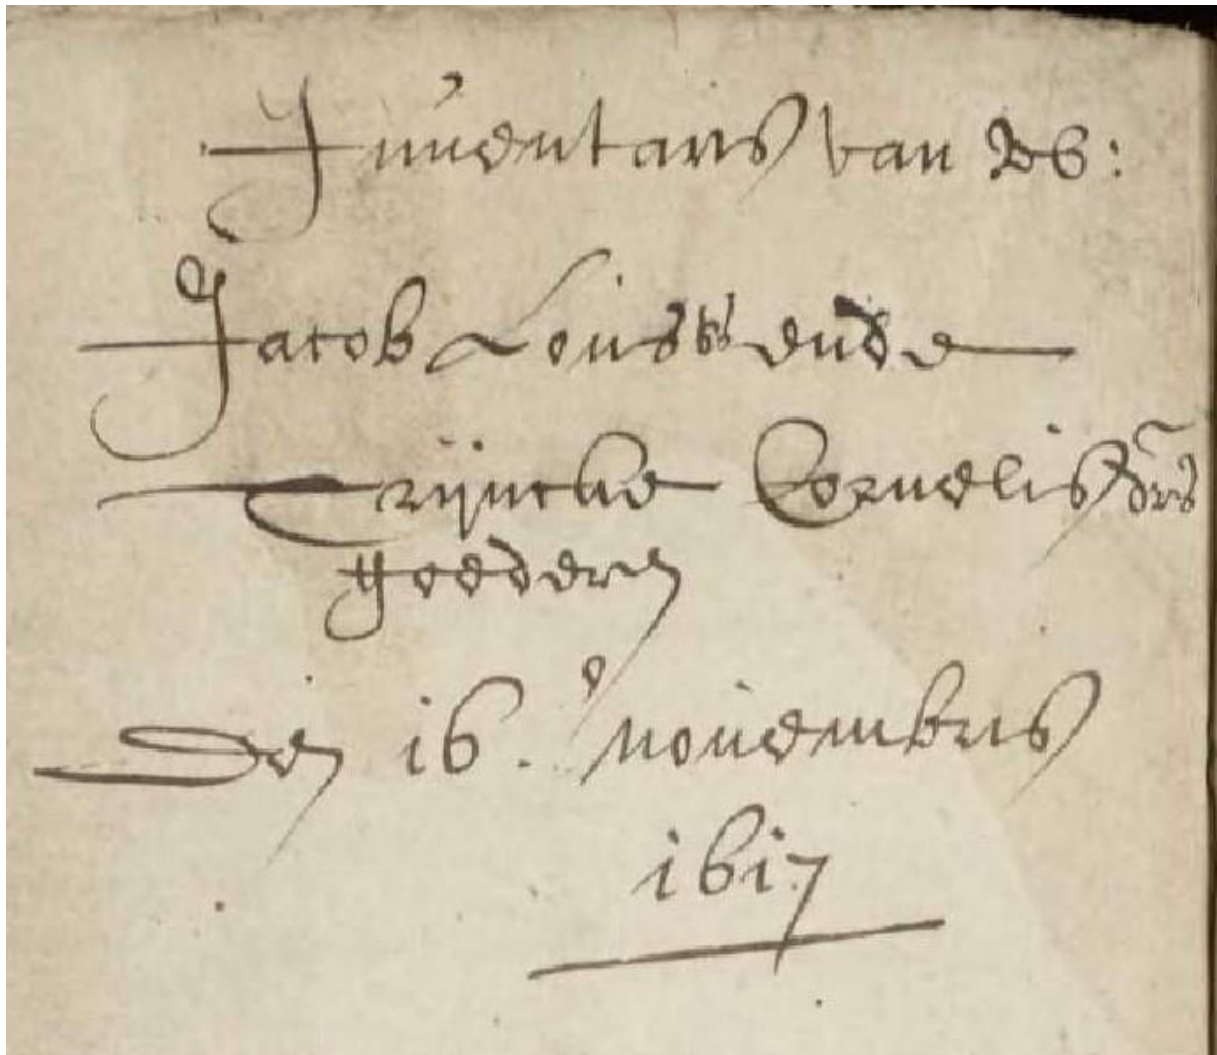 Inventaris van
Jacob Louiss ende
Trijncke Cornelisdrs
goederen
Den 16.e novembris
1617